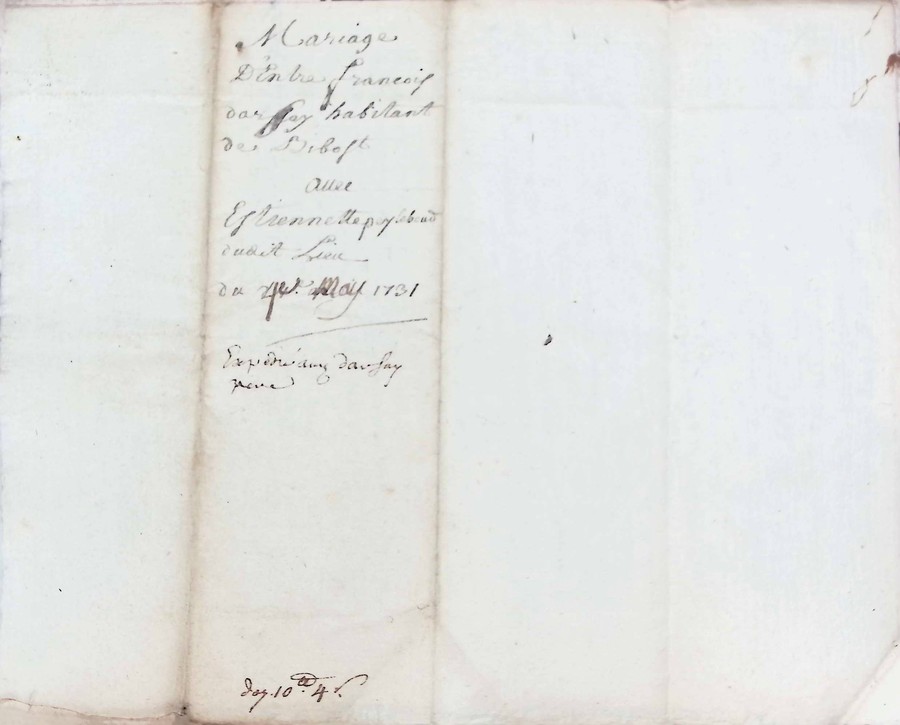 Mariage
D'Entre francois
darssay habitant
de Bibost
avec
Estiennette peyl
dudit Lieu
du May 1731
Expedié aud darssay
pere
day. 10 tt 4 s.